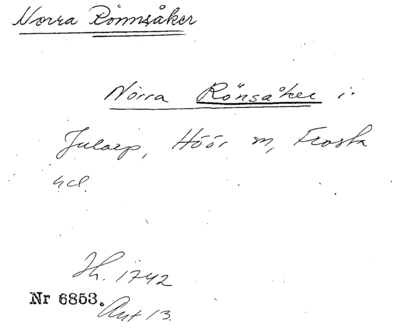 Norra Rönnsåker
Norra Rönsåker i
Julaap, Höör m, Frosta
hd.
Jh. 1742
Nr 6853.
Akt 13.